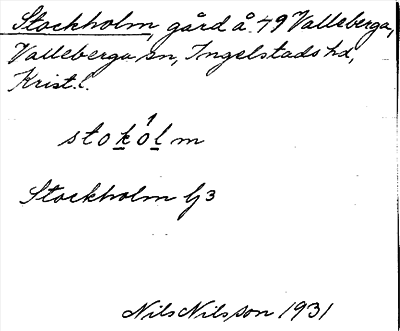 Stockholm, gård å 49 Valleberga,
Valleberga sn, Ingelstads hd,
Krist. l.
stokó̱lm
Stockholm G3
Nils Nilsson 1931